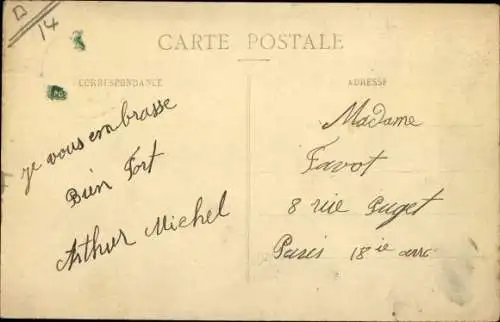 14
CARTE POSTALE
CORRESPONDANCE
ADRESSE
je vous embrasse
Bien Fort
Arthur Michel
Madame
Favot
8 rue Puget
Paris 18ie arr